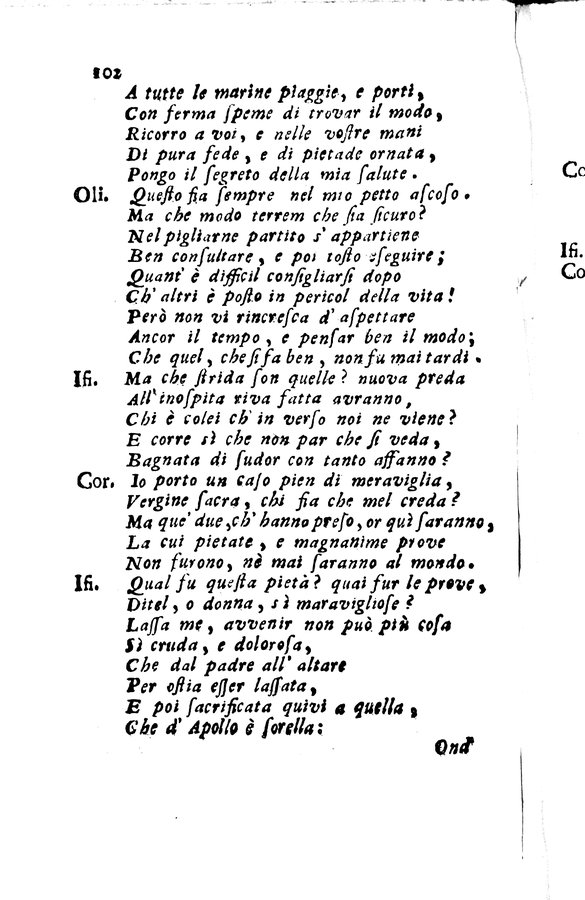 102
A tutte le marine piaggie, e porti,
Con ferma ſpeme di trovar il modo,
Ricorro a voi, e nelle voſtre mani
Di pura fede, e di pietade ornata,
Pongo il ſegreto della mia ſalute.
Oli. Queſto fia ſempre nel mio petto aſcoſo.
Ma che modo terrem che ſia ſicuro?
Nel pigliarne partito s' appartiene
Ben conſultare, e poi toſto eſeguire;
Quant' è difficil conſigliarſi dopo
Ch' altri è poſto in pericol della vita!
Però non vi rincreſca d' aſpettare
Ancor il tempo, e penſar ben il modo;
Che quel, che ſi fa ben, non fu mai tardi.
Ifi. Ma che ſtrida ſon quelle? nuova preda
All' inoſpita riva fatta avranno,
Chi è colei ch' in verſo noi ne viene?
E corre sì che non par che ſi veda,
Bagnata di ſudor con tanto affanno?
Cor. Io porto un caſo pien di meraviglia,
Vergine ſacra, chi fia che mel creda?
Ma que' due, ch' hanno preſo, or quì ſaranno,
La cui pietate, e magnanime prove
Non furono, nè mai ſaranno al mondo.
Ifi. Qual fu queſta pietà? quai fur le prove,
Ditel, o donna, sì maraviglioſe?
Laſſa me, avvenir non può più coſa
Sì cruda, e doloroſa,
Che dal padre all' altare
Per oſtia eſſer laſſata,
E poi ſacrificata quivi a quella,
Che d' Apollo è ſorella:
Ond'
Co
Ifi.
Co